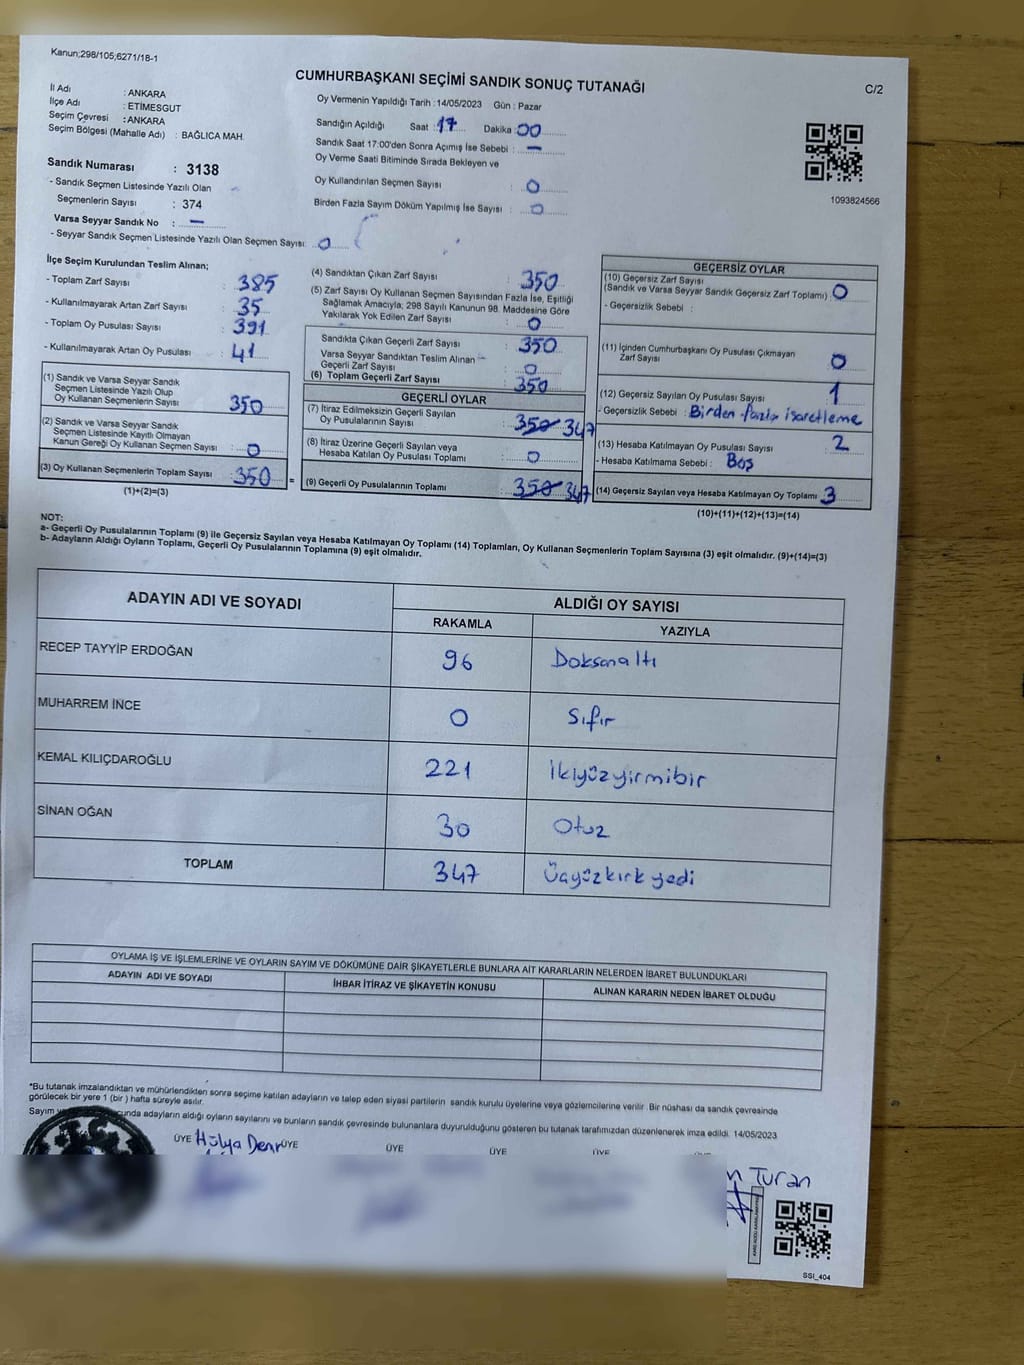 Kanun;298/105;6271/18-1
CUMHURBAŞKANI SEÇİMİ SANDIK SONUÇ TUTANAĞI
C/2
İl Adı : ANKARA
İlçe Adı : ETİMESGUT
Seçim Çevresi : ANKARA
Seçim Bölgesi (Mahalle Adı) : BAĞLICA MAH.
Oy Vermenin Yapıldığı Tarih : 14/05/2023 Gün : Pazar
Sandığın Açıldığı Saat : 17 Dakika : 00
Sandık Saat 17:00'den Sonra Açımış İse Sebebi : —
Oy Verme Saati Bitiminde Sırada Bekleyen ve
Oy Kullandırılan Seçmen Sayısı : 0
Birden Fazla Sayım Döküm Yapılmış İse Sayısı : 0
1093824566
Sandık Numarası : 3138
- Sandık Seçmen Listesinde Yazılı Olan
Seçmenlerin Sayısı : 374
Varsa Seyyar Sandık No : —
- Seyyar Sandık Seçmen Listesinde Yazılı Olan Seçmen Sayısı: 0
İlçe Seçim Kurulundan Teslim Alınan;
- Toplam Zarf Sayısı : 385
- Kullanılmayarak Artan Zarf Sayısı : 35
- Toplam Oy Pusulası Sayısı : 391
- Kullanılmayarak Artan Oy Pusulası : 41
(1) Sandık ve Varsa Seyyar Sandık
Seçmen Listesinde Yazılı Olup
Oy Kullanan Seçmenlerin Sayısı : 350
(2) Sandık ve Varsa Seyyar Sandık
Seçmen Listesinde Kayıtlı Olmayan
Kanun Gereği Oy Kullanan Seçmen Sayısı : 0
(3) Oy Kullanan Seçmenlerin Toplam Sayısı : 350 =
(1)+(2)=(3)
(4) Sandıktan Çıkan Zarf Sayısı : 350
(5) Zarf Sayısı Oy Kullanan Seçmen Sayısından Fazla İse, Eşitliği
Sağlamak Amacıyla; 298 Sayılı Kanunun 98. Maddesine Göre
Yakılarak Yok Edilen Zarf Sayısı : 0
Sandıkta Çıkan Geçerli Zarf Sayısı : 350
Varsa Seyyar Sandıktan Teslim Alınan
Geçerli Zarf Sayısı : 0
(6) Toplam Geçerli Zarf Sayısı : 350
GEÇERLİ OYLAR
(7) İtiraz Edilmeksizin Geçerli Sayılan
Oy Pusulalarının Sayısı : 350 347
(8) İtiraz Üzerine Geçerli Sayılan veya
Hesaba Katılan Oy Pusulası Toplamı : 0
(9) Geçerli Oy Pusulalarının Toplamı : 350 347
GEÇERSİZ OYLAR
(10) Geçersiz Zarf Sayısı
(Sandık ve Varsa Seyyar Sandık Geçersiz Zarf Toplamı) : 0
- Geçersizlik Sebebi :
(11) İçinden Cumhurbaşkanı Oy Pusulası Çıkmayan
Zarf Sayısı : 0
(12) Geçersiz Sayılan Oy Pusulası Sayısı : 1
- Geçersizlik Sebebi : Birden fazla işaretleme
(13) Hesaba Katılmayan Oy Pusulası Sayısı : 2
- Hesaba Katılmama Sebebi : Boş
(14) Geçersiz Sayılan veya Hesaba Katılmayan Oy Toplamı : 3
(10)+(11)+(12)+(13)=(14)
NOT:
a- Geçerli Oy Pusulalarının Toplamı (9) ile Geçersiz Sayılan veya Hesaba Katılmayan Oy Toplamı (14) Toplamları, Oy Kullanan Seçmenlerin Toplam Sayısına (3) eşit olmalıdır. (9)+(14)=(3)
b- Adayların Aldığı Oyların Toplamı, Geçerli Oy Pusulalarının Toplamına (9) eşit olmalıdır.
ADAYIN ADI VE SOYADI ALDIĞI OY SAYISI
RAKAMLA YAZIYLA
RECEP TAYYİP ERDOĞAN 96 Doksanaltı
MUHARREM İNCE 0 Sıfır
KEMAL KILIÇDAROĞLU 221 İkiyüzyirmibir
SİNAN OĞAN 30 Otuz
TOPLAM 347 Üçyüzkırkyedi
OYLAMA İŞ VE İŞLEMLERİNE VE OYLARIN SAYIM VE DÖKÜMÜNE DAİR ŞİKAYETLERLE BUNLARA AİT KARARLARIN NELERDEN İBARET BULUNDUKLARI
ADAYIN ADI VE SOYADI İHBAR İTİRAZ VE ŞİKAYETİN KONUSU ALINAN KARARIN NEDEN İBARET OLDUĞU
*Bu tutanak imzalandıktan ve mühürlendikten sonra seçime katılan adayların ve talep eden siyasi partilerin sandık kurulu üyelerine veya gözlemcilerine verilir. Bir nüshası da sandık çevresinde
görülecek bir yere 1 (bir ) hafta süreyle asılır.
Sayım adayların aldığı oyların sayılarını ve bunların sandık çevresinde bulunanlara duyurulduğunu gösteren bu tutanak tarafımızdan düzenlenerek imza edildi. 14/05/2023
ÜYE Hülya ÜYE ÜYE ÜYE ÜYE
Turan
SSI_404